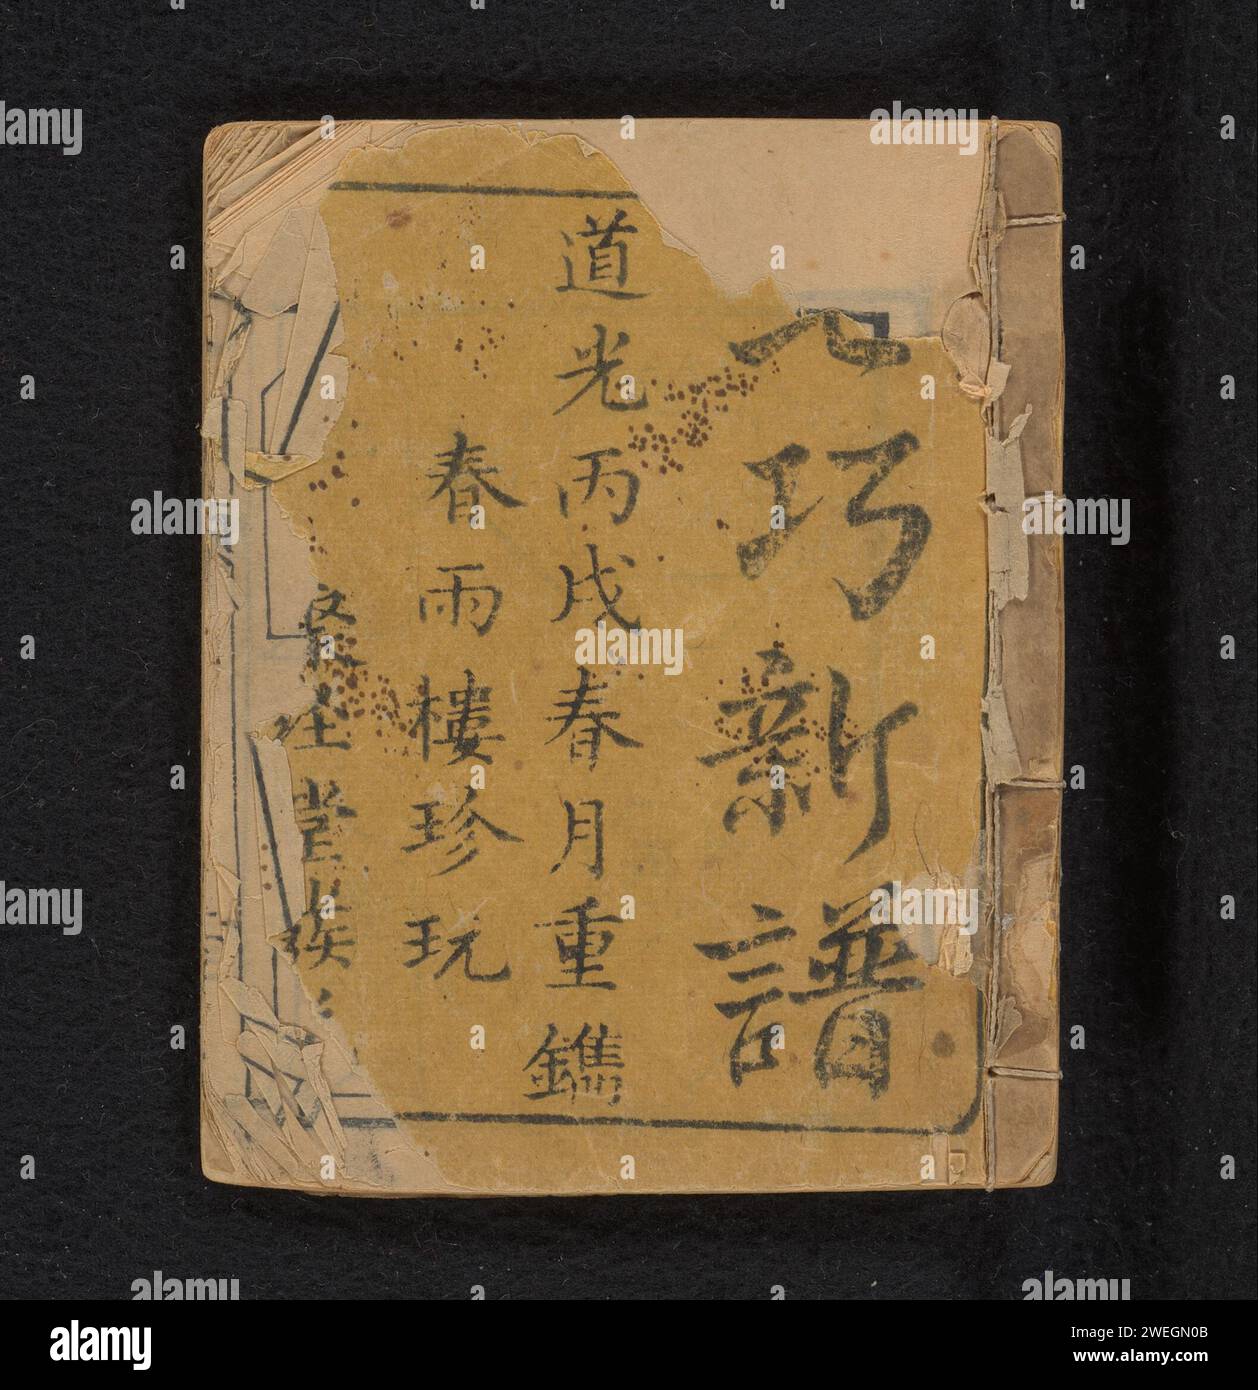 巧新譜
道光丙戌春月重鐫
春雨樓珍玩
堂
alamy
Image ID: 2WEGN0B
www.alamy.com